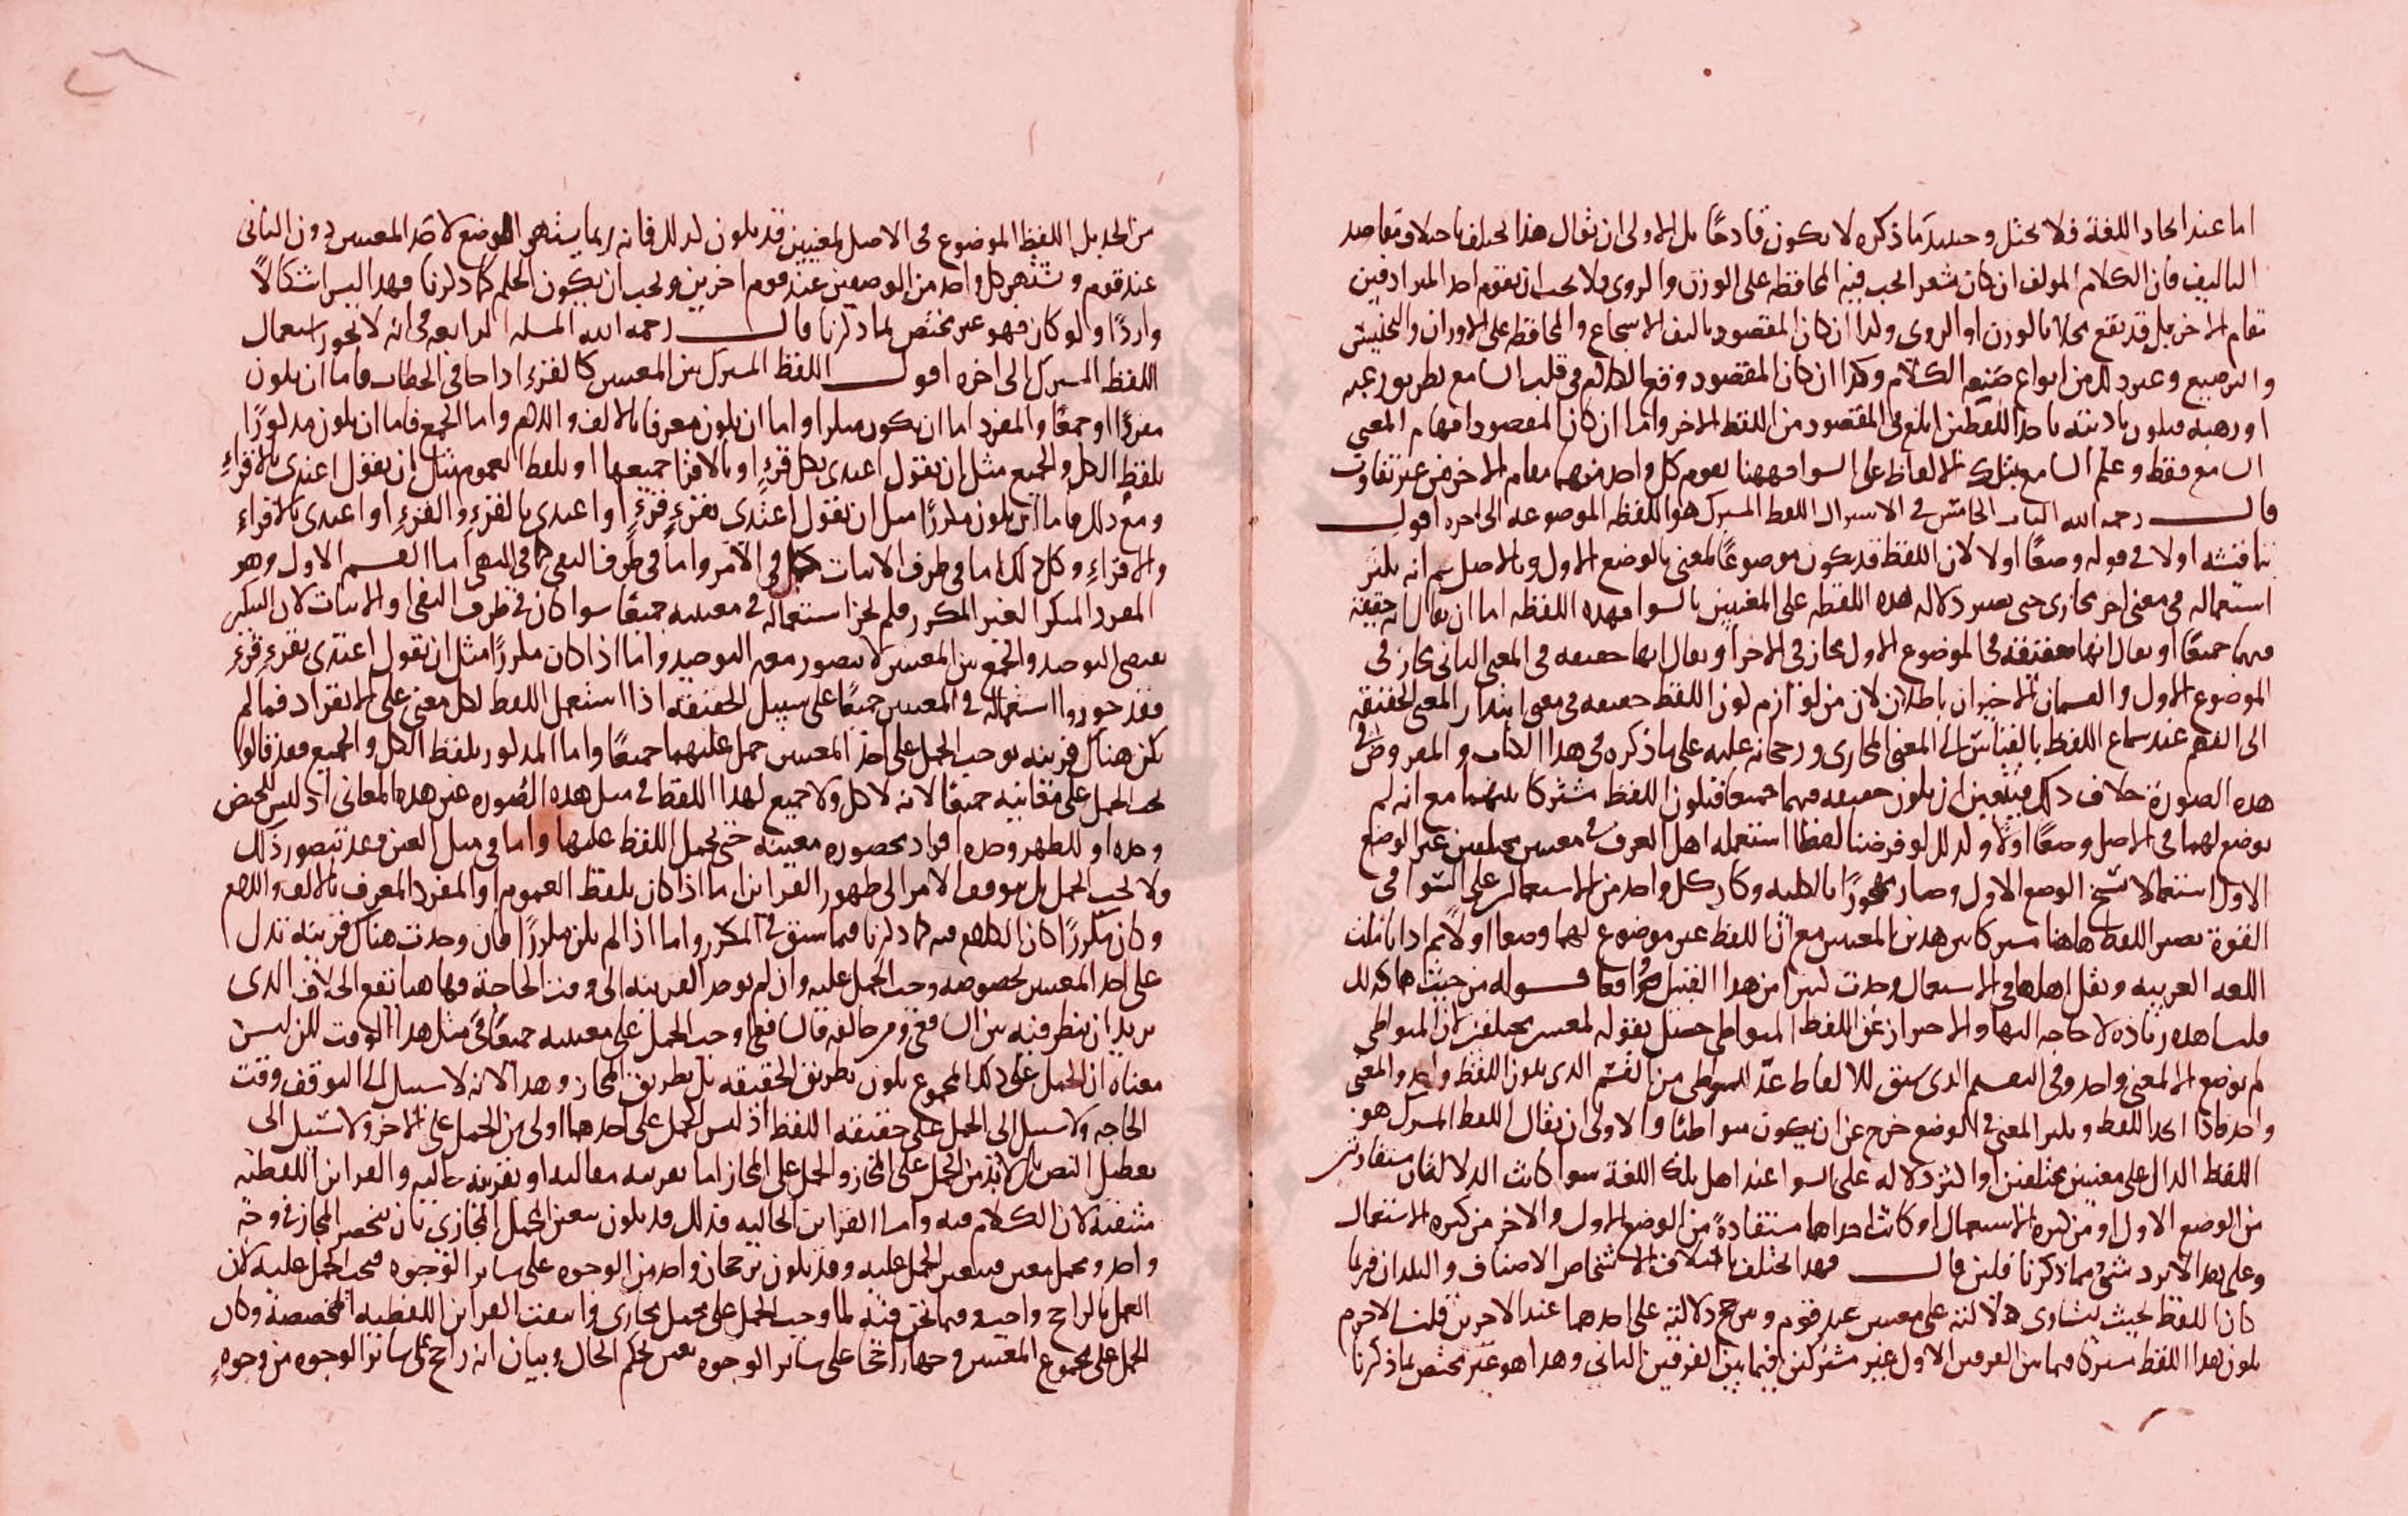 اما عند اتحاد اللغة فلا يختل وحينئذ ما ذكره لا يكون قادحًا بل الاولى ان يقال هذا يختلف باختلاف مقاصد
التاليف فان الكلام المولف ان كان شعرا يجب فيه المحافظة على الوزن والروى فلا يجب ان يقوم احد المترادفين
مقام الاخر بل قد يقع مخلا بالوزن او الروى ولذا ان كان المقصود تاليف الاسجاع والمحافظة على الاوزان والتجنيس
والترصيع وغير ذلك من انواع صنعة الكلام وكذا ان كان المقصود وقع الكلام في قلب السامع بطريق رغبة
او رهبة فيكون تاديته باحد اللفظين ابلغ في المقصود من اللفظ الاخر واما ان كان المقصود افهام المعنى
السامع فقط وعلم السامع بتلك الالفاظ على السوا فههنا يقوم كل واحد منهما مقام الاخر من غير تفاوت
قال رحمه الله الباب الخامس في الاشتراك اللفظ المشترك هو اللفظة الموضوعة الى اخره اقول
نناقشه اولا في قوله وضعًا اولا لان اللفظ قد يكون موضوعًا لمعنى بالوضع الاول وبالاصل ثم انه يكثر
استعماله في معنى اخر مجازى حتى يصير دلالة هذه اللفظة على المعنيين بالسوا فهذه اللفظة اما ان يقال انه حقيقة
فيهما جميعًا او يقال انها حقيقة في الموضوع الاول مجاز في الاخر او يقال انها حقيقة في المعنى الثاني مجاز في
الموضوع الاول والقسمان الاخيران باطلان لان من لوازم كون اللفظ حقيقة في معنى ابتدار المعنى الحقيقة
الى الفهم عند سماع اللفظ بالقياس الى المعنى المجازى ورجحانه عليه على ما ذكره في هذا الكتاب والمفروض في
هذه الصورة خلاف ذلك فيتعين ان يكون حقيقة فيهما جميعا فيكون اللفظ مشتركا بينهما مع انه لم
يوضع لهما في الاصل وضعًا اولا ولذلك لو فرضنا لفظا استعمله اهل العرف في معنيين مختلفين غير الوضع
الاول استعمالا نسخ الوضع الاول وصار مهجورًا بالكلية وكان كل واحد من الاستعمالين على السوا في
القوة يصير اللفظ هاهنا مشتركا بين هذين المعنيين مع ان اللفظ غير موضوع لهما وضعا اولا ثم اذا تاملت
اللغة العربية ونقل اهلها في الاستعمال وجدت كثيرا من هذا القبيل واقعا قوله من حيث هما كذلك
قلنا هذه زيادة لا حاجة اليها والاحتراز عن اللفظ المتواطي حصل بقوله لمعنيين مختلفين لان المتواطي
لم يوضع الا لمعنى واحد وفي التقسيم الذى سبق للالفاظ عدّ المتواطي من القسم الذى يكون اللفظ واحد والمعنى
واحد فاذا اتحد اللفظ وتكثر المعنى في الوضع خرج عن ان يكون متواطئا والاولى ان يقال اللفظ المشترك هو
اللفظ الدال على معنيين مختلفين او اكثر دلالة على السوا عند اهل تلك اللغة سوا كانت الدلالتان مستفادتين
من الوضع الاول او من كثرة الاستعمال او كانت احداهما مستفادة من الوضع الاول والاخر من كثرة الاستعمال
وعلى هذا لا يرد شئ مما ذكرنا فلئن قال فهذا يختلف باختلاف الاشخاص الاصناف والبلدان فربما
كان اللفظ بحيث يتساوى دلالته على معنيين عند قوم ويترجح دلالته على احدهما عند الاخرين قلنا لا جرم
يكون هذا اللفظ مشتركا فيما بين الفريق الاول غير مشترك فيما بين الفريق الثاني وهذا هو غير مختص بما ذكرنا
من الحد بل اللفظ الموضوع في الاصل لمعنيين قد يكون كذلك فانه ربما يشتهر الوضع لاحد المعنيين دون الثاني
عند قوم ويشتهر كل واحد من الوضعين عند قوم اخرين ويجب ان يكون الحكم كما ذكرنا فهذا ليس اشكالا
واردًا ولو كان فهو غير مختص بما ذكرنا قال رحمه الله المسلة الرابعة في انه لا يجوز استعمال
اللفظ المشترك الى اخره اقول اللفظ المشترك بين المعنيين كالقرء اذا جا في الخطاب فاما ان يكون
مفردًا او جمعًا والمفرد اما ان يكون منكرا واما ان يكون معرفا بالالف واللام واما الجمع فاما ان يكون مذكورًا
بلفظ الكل والجميع مثل ان يقول اعتدى بكل قرءٍ او بالاقرا جميعها او بلفظ العموم مثل ان يقول اعتدى بالاقراءِ
ومع ذلك فاما ان يكون مكررًا مثل ان يقول اعتدى بقرءٍ قرءٍ او اعتدى بالقرءِ والقرءِ او اعتدى بالاقراءِ
والاقراءِ وكل ذلك اما في طرف الاثبات كما في الامر واما في طرف النفى كما في النهى اما القسم الاول وهو
المفرد المنكر الغير المكرر فلم يجز استعماله في معنييه جميعًا سوا كان في طرف النفى او الاثبات لان التنكير
يقتضى التوحيد والجمع بين المعنيين لا يتصور معه التوحيد واما اذا كان مكررًا مثل ان يقول اعتدى بقرءٍ قرءٍ
فقد جوزوا استعماله في المعنيين جميعًا على سبيل الحقيقة اذا استعمل اللفظ لكل معنى على الانفراد فما لم
يكن هناك قرينة توجب الحمل على احد المعنيين حمل عليهما جميعًا واما المذكور بلفظ الكل والجميع فقد قالوا
يجب الحمل على معانيه جميعًا لانه لا كل ولا جميع لهذا اللفظ في مثل هذه الصورة غير هذه المعانى اذ ليس للحيض
وحده او للطهر وحده افراد محصورة معينة حتى يحمل اللفظ عليها واما في مثل العين وقد يتصور ذلك
ولا يجب الحمل بل موقوف الامر الى ظهور القراين اما اذا كان بلفظ العموم او المفرد المعرف بالالف واللام
وكان مكررًا كان الكلام فيه كما ذكرنا فيما سبق في المكرر واما اذا لم يكن مكررًا فان وجدت هناك قرينة تدل
على احد المعنيين بخصوصه وجب الحمل عليه وان لم يوجد القرينة الى وقت الحاجة فهاهنا يقع الخلاف الذى
يريد ان ينظر فيه بين الشافعى ومن خالفه قال الشافعى وجب الحمل على معنييه جميعًا في مثل هذا الوقت لكن ليس
معناه ان الحمل على ذلك المجموع يكون بطريق الحقيقة بل بطريق المجاز وهذا لانه لا سبيل الى التوقف وقت
الحاجة ولا سبيل الى الحمل على حقيقة اللفظ اذ ليس الحمل على احدهما اولى من الحمل على الاخر ولا سبيل الى
تعطيل النص بل لابد من الحمل على المجاز والحمل على المجاز اما بقرينة مقالية او بقرينة حالية والقراين اللفظية
منتفية لان الكلام فيه واما القراين الحالية فذلك قد يكون بتعين المحمل المجازى بان ينحصر المجاز في وجه
واحد ومحمل معين فيتعين الحمل عليه وقد يكون برجحان واحد من الوجوه على سائر الوجوه فيجب الحمل عليه لان
العمل بالراجح واجب وفيما نحن فيه لما وجب الحمل على محمل مجازى وانتفت القراين اللفظية المخصصة وكان
الحمل على مجموع المعنيين وجها راجحا على سائر الوجوه تعين بحكم الحال وبيان انه راجح على سائر الوجوه من وجوهٍ